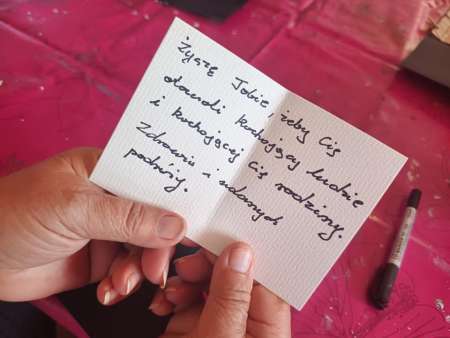 Życzę Tobie, żeby Cię
otaczali kochający ludzie
i kochającej Cię rodziny.
Zdrowia i udanych
podróży.